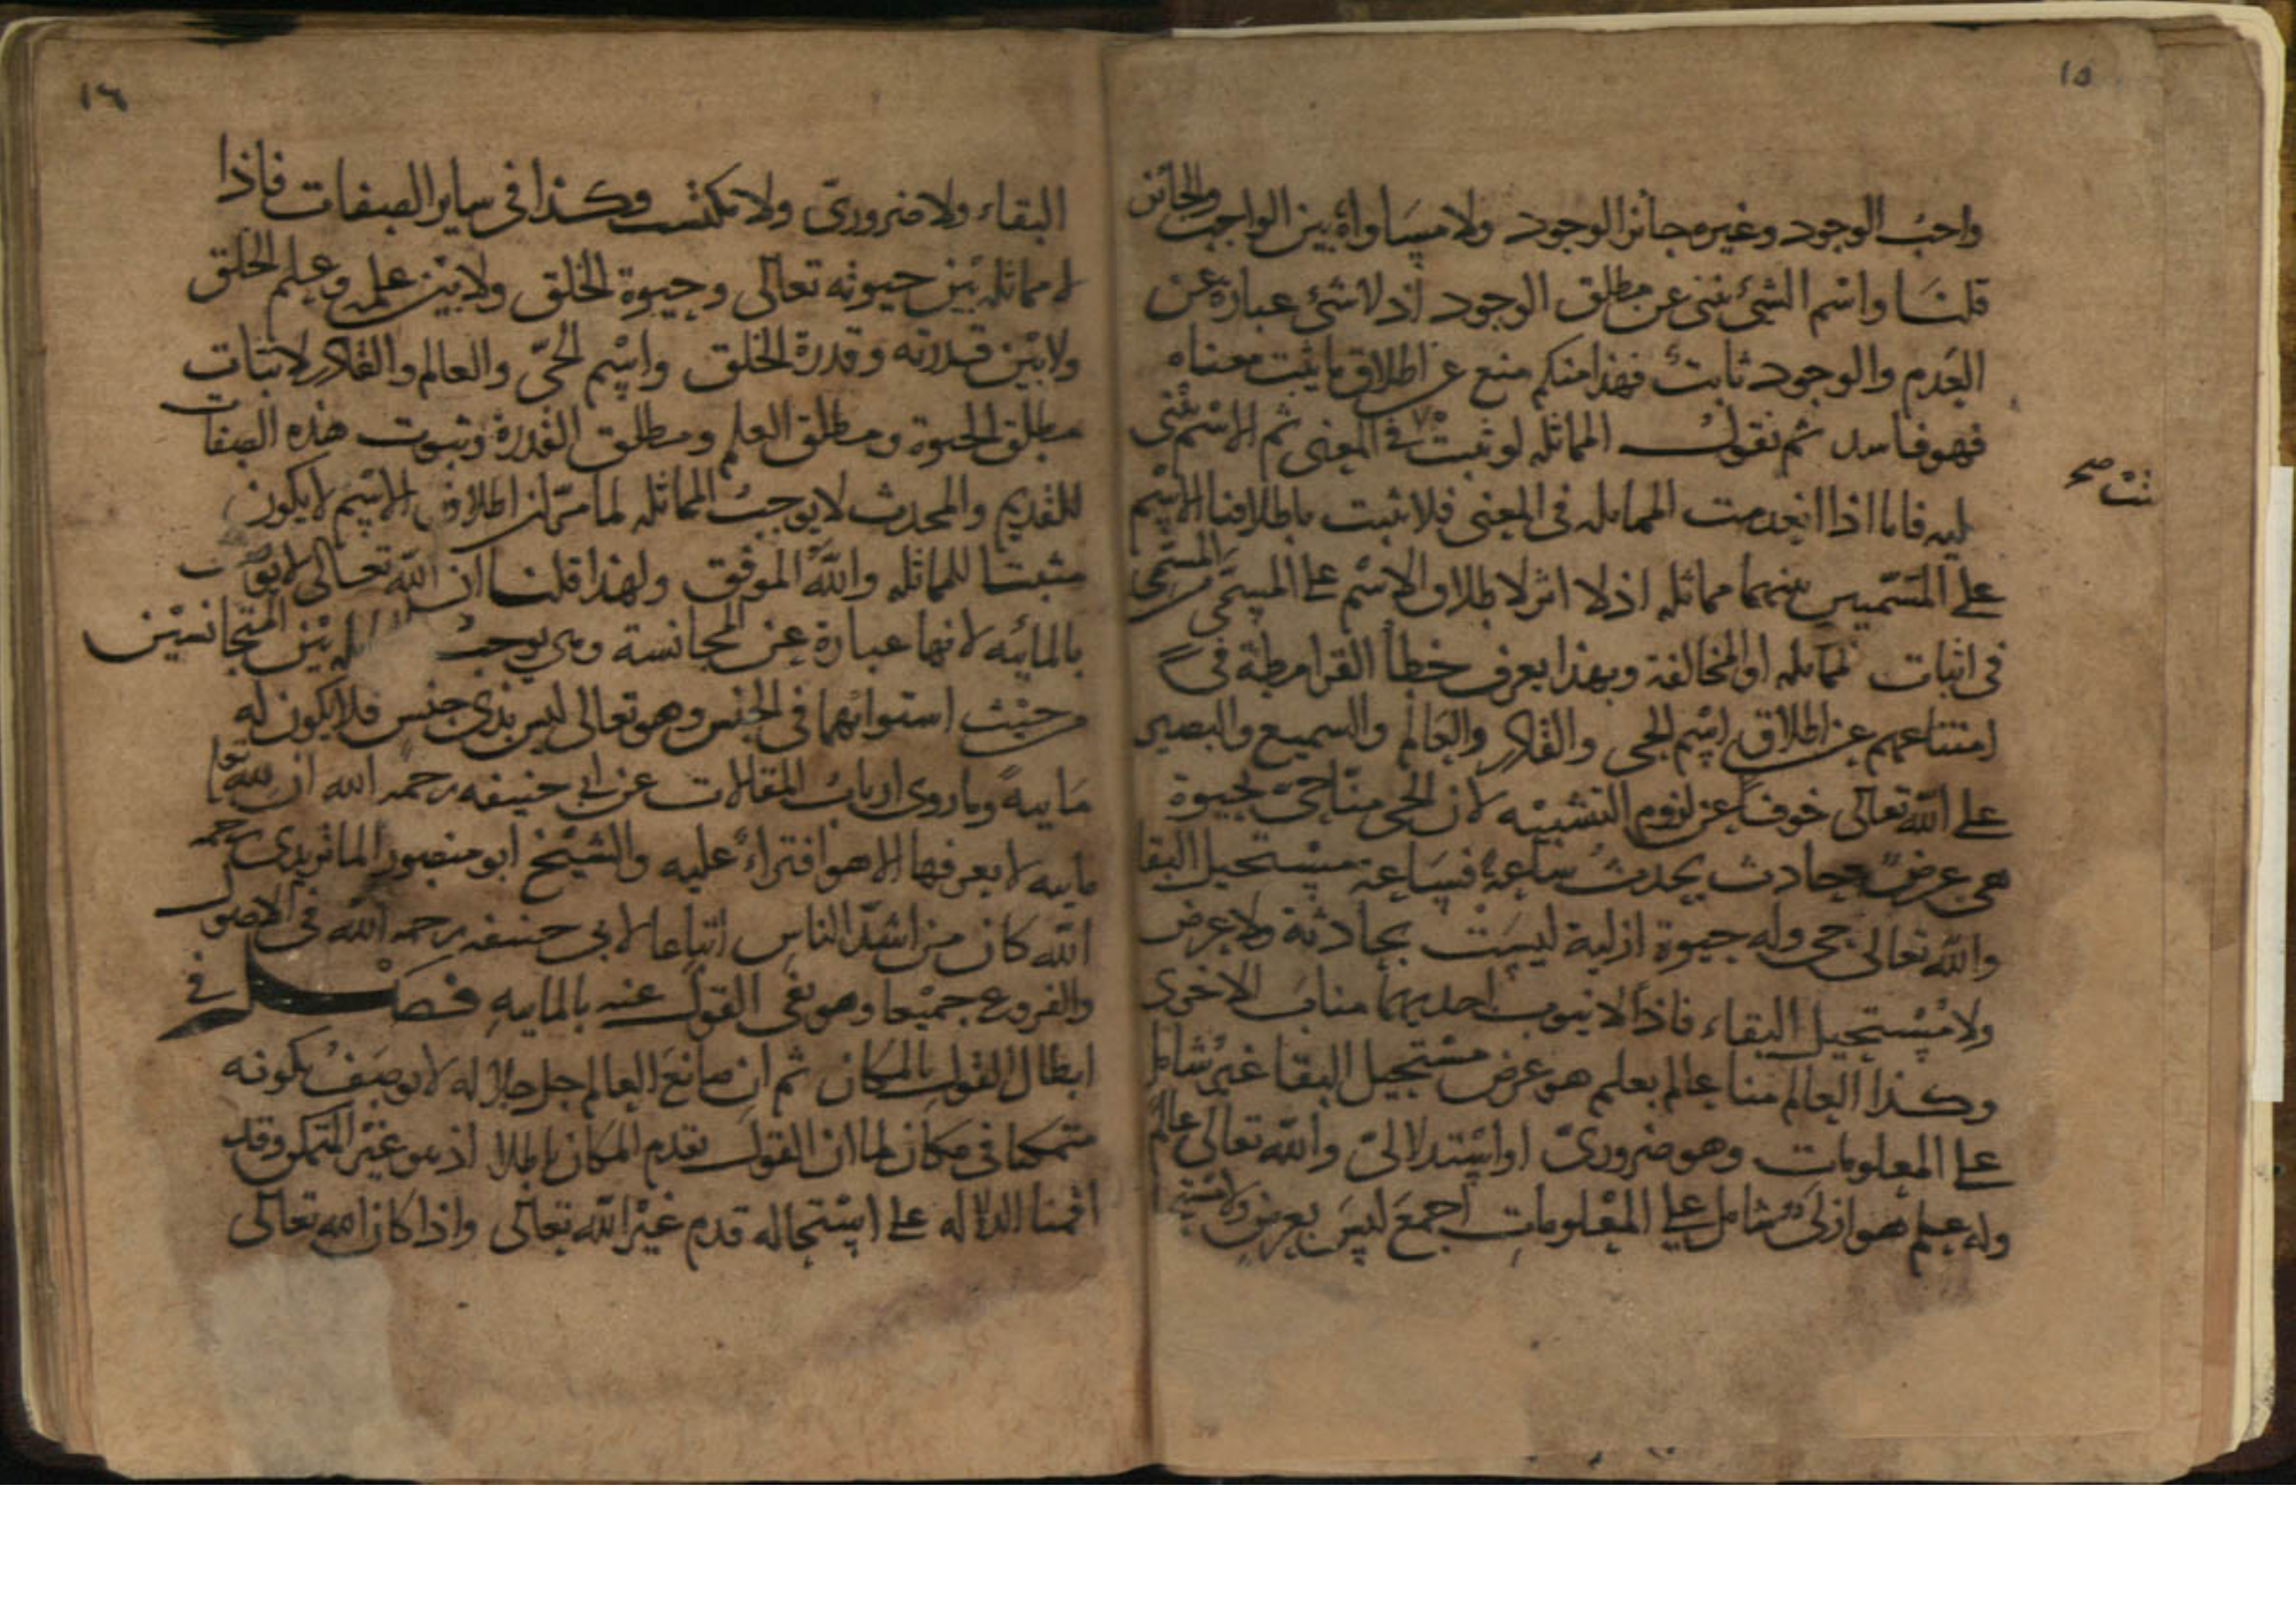 ١٥
واجب الوجود وغيره جائز الوجود ولا مساواة بين الواجب والجائز
قلنا واسم الشئ ينبئ عن مطلق الوجود اذ لا شئ عبارة عن
العدم والوجود ثابت فهذا منكم منع عن اطلاق ما يثبت معناه
فهو فاسد ثم نقول المماثلة لو ثبتت في المعنى ثم الاسم ينبئ
ثبتت صح
فاما اذا انعدمت المماثلة في المعنى فلا تثبت باطلاقنا الاسم
على المسميين بينهما مماثلة اذ لا اثر لاطلاق الاسم على المسمى
في اثبات المماثلة او المخالفة وبهذا يعرف خطأ القرامطة في
امتناعهم عن اطلاق اسم الحى والقادر والعالم والسميع والبصير
على الله تعالى خوفا عن لزوم التشبيه لان الحى منا حى بحيوة
هى عرض حادث يحدث ساعة فساعة مستحيل البقا
والله تعالى حى وله حيوة ازلية ليست بحادثة ولا عرض
ولا مستحيل البقاء فاذا لا ينوب احديهما مناب الاخرى
وكذا العالم منا عالم بعلم هو عرض مستحيل البقا غير شامل
على المعلومات وهو ضرورى او استدلالى والله تعالى عالم
وله علم هو ازلى شامل على المعلومات اجمع ليس بعرض
١٦
البقاء ولا ضرورى ولا مكتسب وكذا في ساير الصفات فاذا
لا مماثلة بين حيوته تعالى وحيوة الخلق ولا بين علمه وعلم الخلق
ولا بين قدرته وقدرة الخلق واسم الحى والعالم والقادر لاثبات
مطلق الحيوة ومطلق العلم ومطلق القدرة وثبوت هذه الصفات
للقديم والمحدث لا يوجب المماثلة لما مر ان اطلاق الاسم لا يكون
مثبتا للمماثلة والله الموفق ولهذا قلنا ان الله تعالى لا
بالمائية لانها عبارة عن المجانسة وهى توجب بين المتجانسين
من حيث استوائهما في الجنس وهو تعالى ليس بذى جنس فلا يكون له
مايية وما روى ارباب المقالات عن ابى حنيفه رحمه الله ان لله تعا
مايية لا يعرفها الا هو افتراء عليه والشيخ ابو منصور الماتريدى رحمه
الله كان من اشد الناس اتباعا لابى حنيفه رحمه الله في الاصول
والفروع جميعا وهو نفى القول عنه بالمايية فصل في
ابطال القول بالمكان ثم ان صانع العالم جل جلاله لا يوصف بكونه
متمكنا في مكان لما ان القول بقدم المكان باطل اذ هو غير المتمكن وقد
اقمنا الدلالة على استحالة قدم غير الله تعالى واذا كان الله تعالى